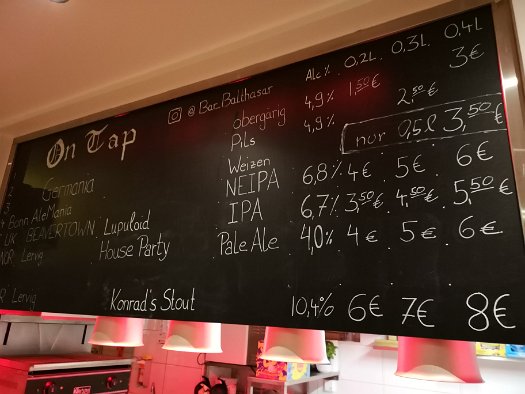 On Tap
@ Bar_Balthasar
Alc% 0,2L 0,3L 0,4L
obergärig 4,9% 1,50€ 3€
Germania Pils 4,9% 2,50€
Weizen nur 0,5l 3,50€
Bonn AleMania NEIPA 6,8% 4€ 5€ 6€
UK BEAVERTOWN Lupuloid IPA 6,7% 3,50€ 4,50€ 5,50€
NOR Lervig House Party Pale Ale 4,0% 4€ 5€ 6€
Lervig Konrad's Stout 10,4% 6€ 7€ 8€